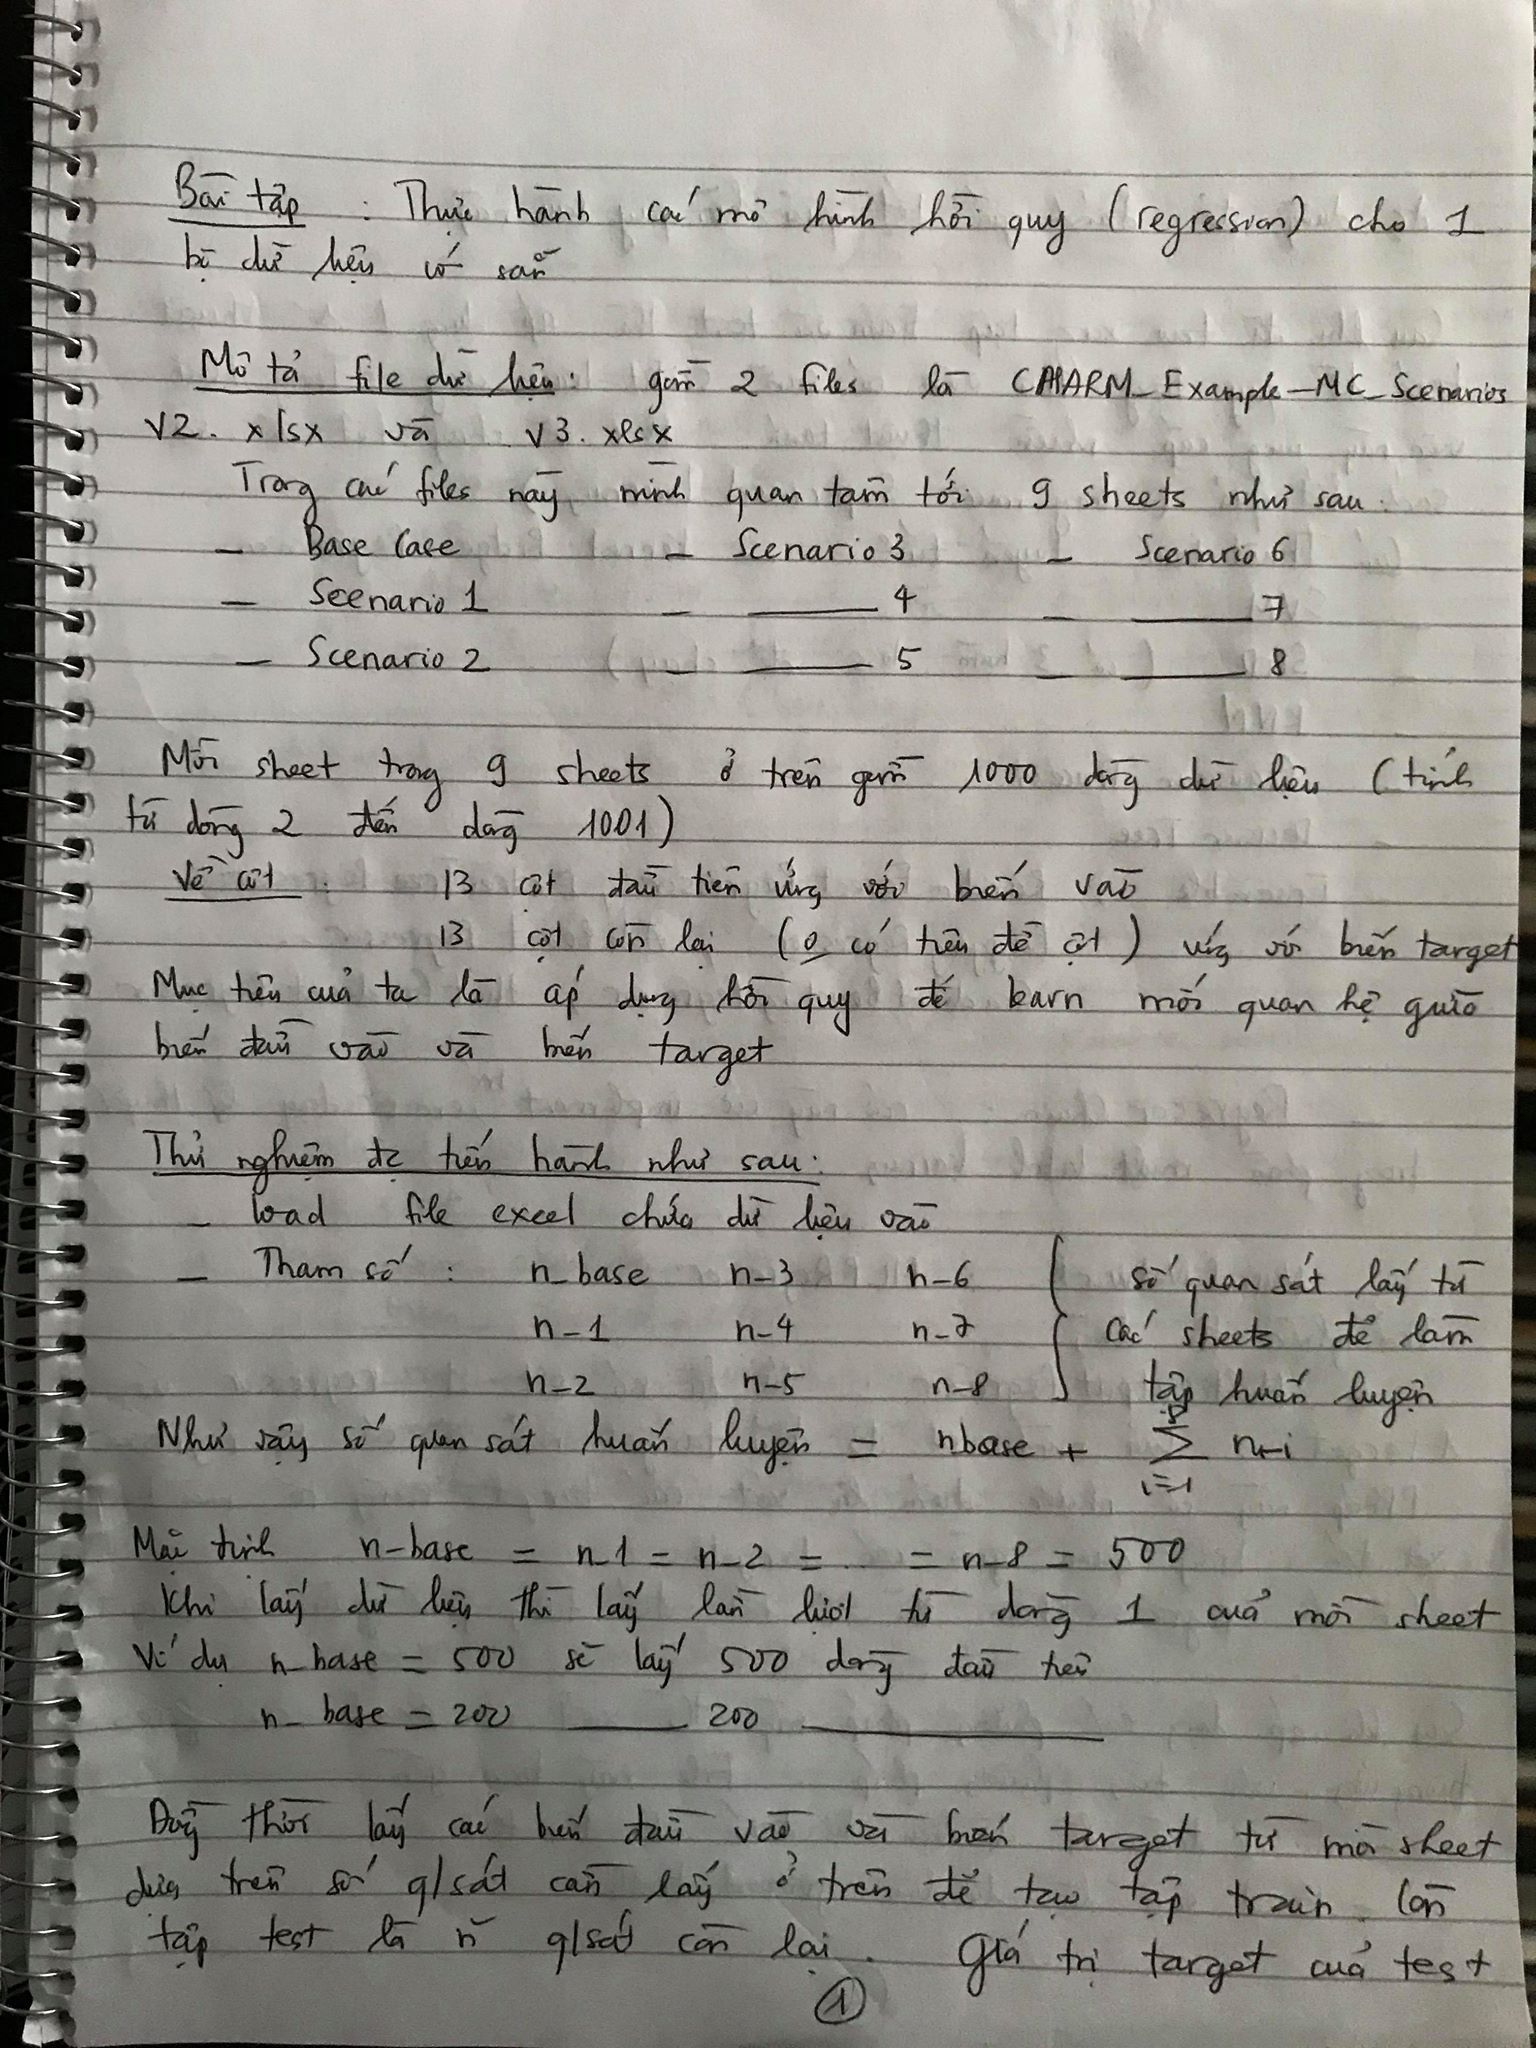 Bài tập : Thực hành các mô hình hồi quy (regression) cho 1
bộ dữ liệu có sẵn
Mô tả file dữ liệu: gồm 2 files là CHARM_Example_MC_Scenarios
V2.xlsx và V3.xlsx
Trong các files này mình quan tâm tới 9 sheets như sau:
- Base Case - Scenario 3 - Scenario 6
- Scenario 1 - ——— 4 - ——— 7
- Scenario 2 - ——— 5 - ——— 8
Mỗi sheet trong 9 sheets ở trên gồm 1000 dòng dữ liệu (tính
từ dòng 2 đến dòng 1001)
Về cột : 13 cột đầu tiên ứng với biến vào
13 cột còn lại (0 có tiêu đề cột) ứng với biến target
Mục tiêu của ta là áp dụng hồi quy để learn mối quan hệ giữa
biến đầu vào và biến target
Thử nghiệm đc tiến hành như sau:
- load file excel chứa dữ liệu vào
- Tham số : n_base n_3 n_6 số quan sát lấy từ
n_1 n_4 n_7 các sheets để làm
n_2 n_5 n_8 tập huấn luyện
Như vậy số quan sát huấn luyện = nbase + Σ n_i
8
i=1
Mặc định n_base = n_1 = n_2 = ... = n_8 = 500
Khi lấy dữ liệu thì lấy lần lượt từ dòng 1 của mỗi sheet
Ví dụ n_base = 500 sẽ lấy 500 dòng đầu tiên
n_base = 200 ——— 200 ———
Đồng thời lấy các biến đầu vào và biến target từ mỗi sheet
dựa trên số q/sát cần lấy ở trên để tạo tập train. Còn
tập test là n~ q/sát còn lại. Giá trị target của test
1